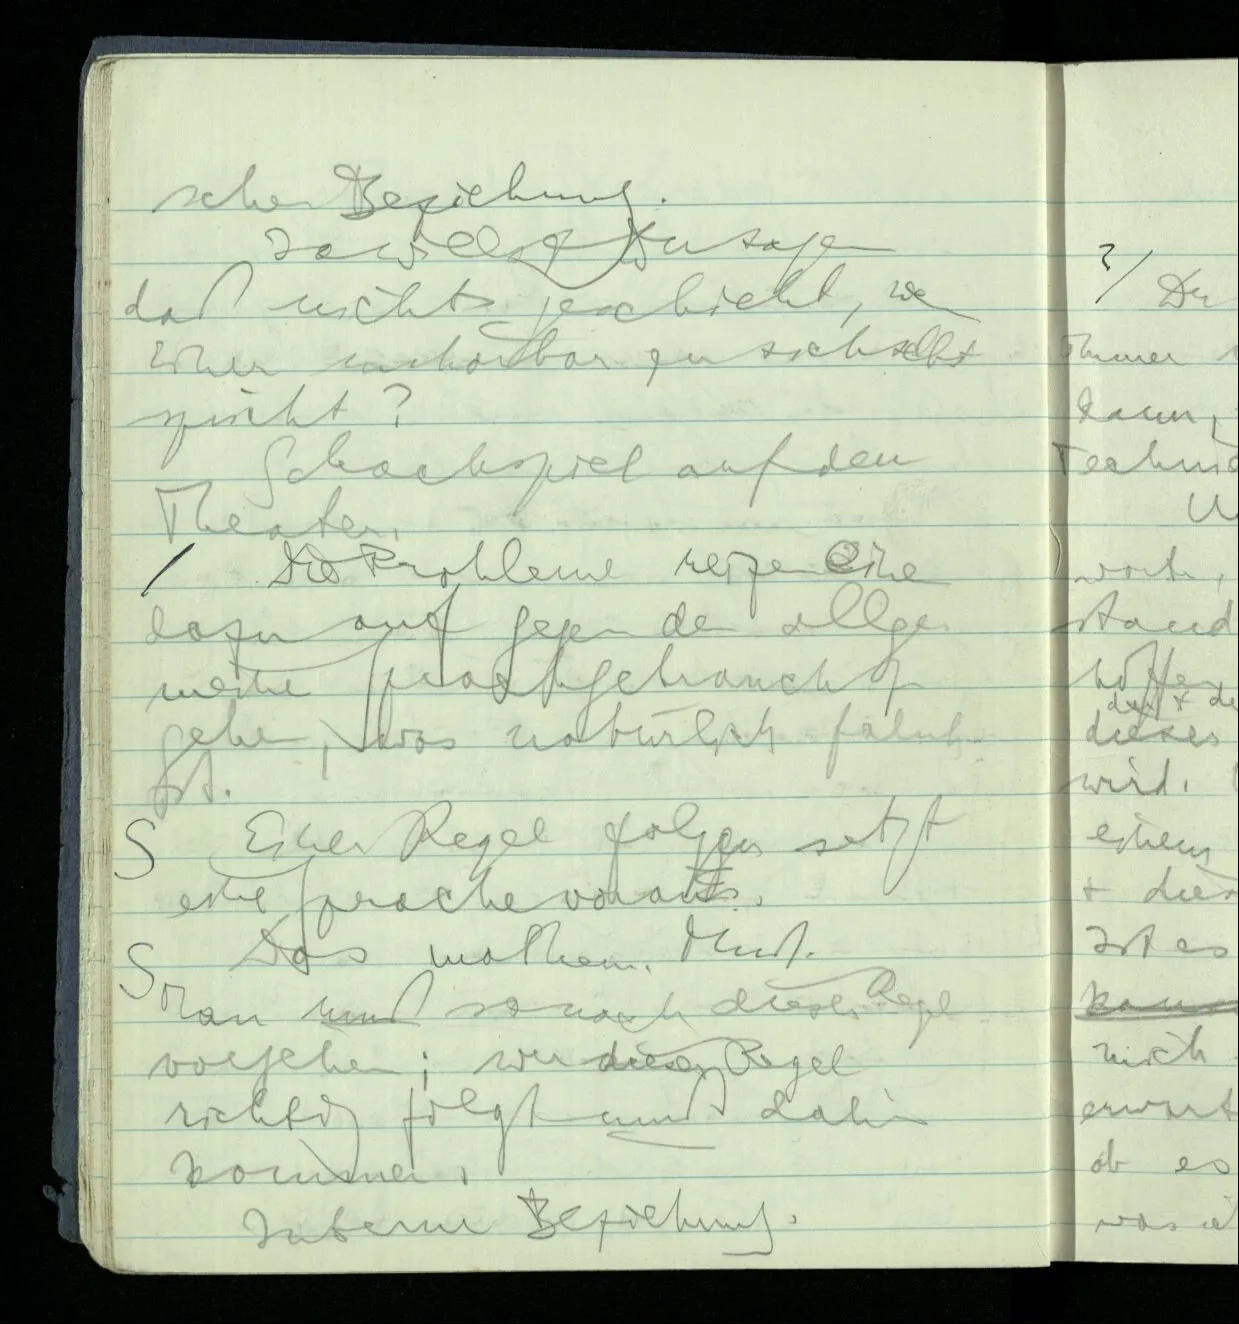 scher Beziehung.
So willst Du sagen
daß nichts geschieht, wenn
Einer unhörbar zu sich selbst
spricht?
Schachspiel auf dem
Theater.
/ Die Probleme reizen Eine
dazu auf gegen den allge
meine Sprachgebrauch zu
gehen, was natürlich falsch
ist.
S Einer Regel folgen setzt
eine Sprache voraus.
S Das mathem. Muß.
Man muß so nach dieser Regel
vorgehen; wer dieser Regel
richtig folgt muß dahin
kommen.
Interne Beziehung.
?/ Du
immer
dann,
Techni
wort,
stand
hoffen
der + de
dieses
wird.
einem
+ dies
Ist es
kann
mich
erwart
ob es
was